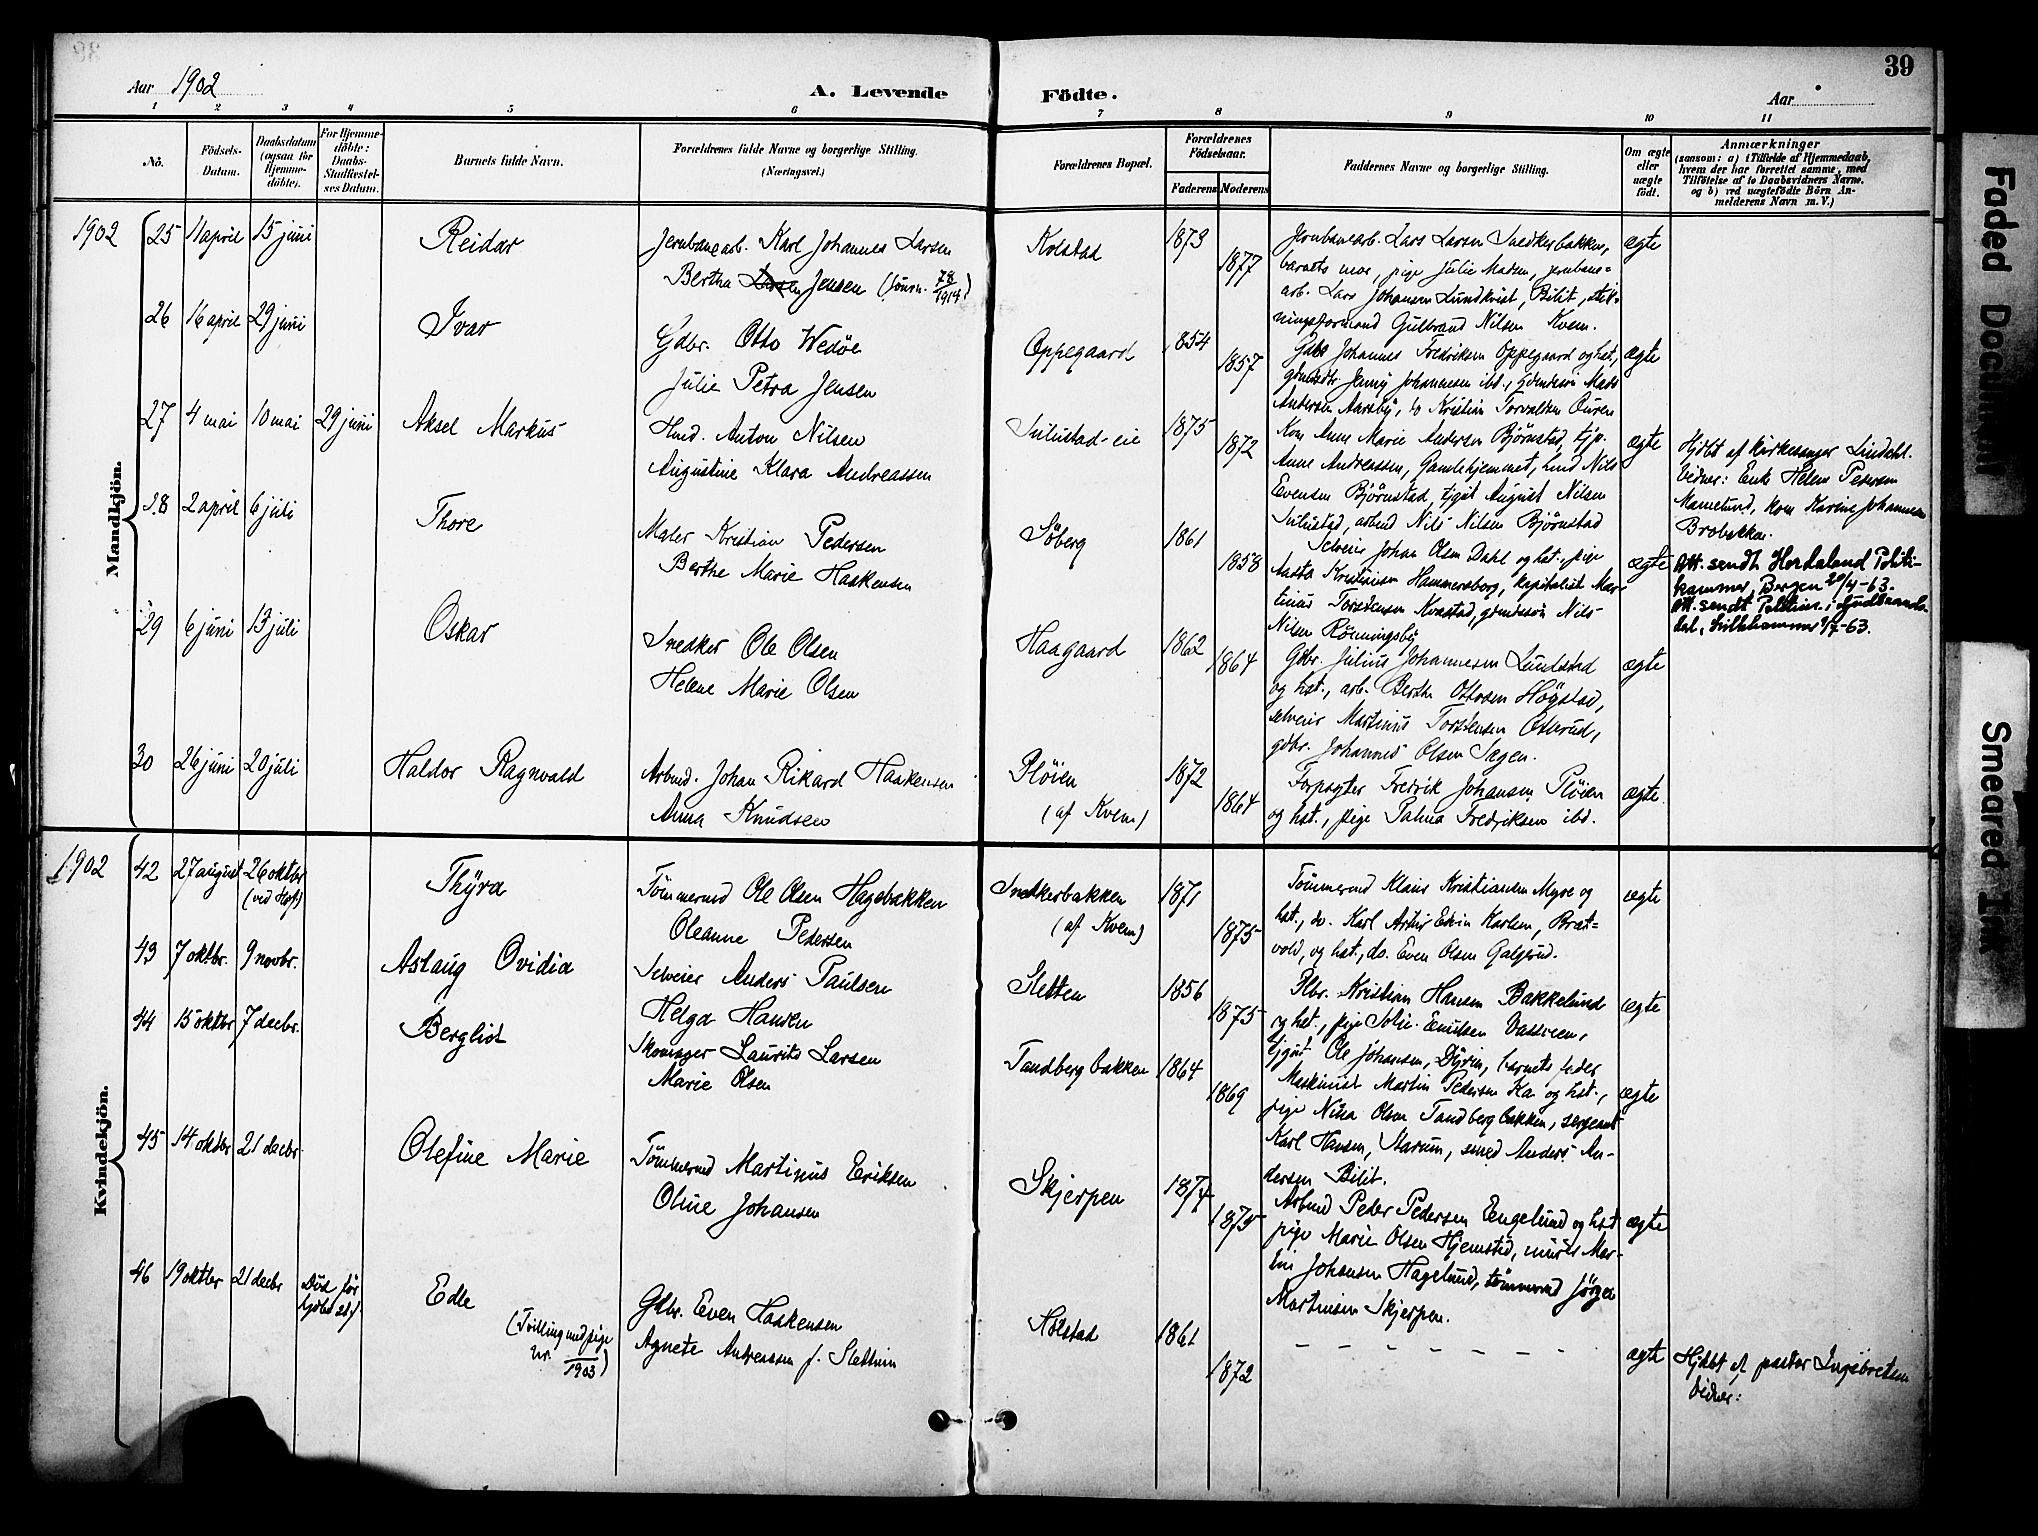 39
Aar 1902
A. Levende Födte.
Aar
1 2 3 4 5 6 7 8 9 10 11
No.
Födsels-Datum.
Daabsdatum (ogsaa for Hjemmedöbte).
For Hjemmedöbte: Daabs-Stadfæstelses Datum.
Barnets fulde Navn.
Forældrenes fulde Navne og borgerlige Stilling.
(Næringsvei.)
Forældrenes Bopæl.
Forældrenes Födselsaar.
Faderens Moderens
Faddernes Navne og borgerlige Stilling.
Om ægte eller uægte födt.
Anmærkninger
(saasom: a) i Tilfælde af Hjemmedaab,
hvem der har forrettet samme, med
Tilföielse af to Daabsvidners Navne.
og b) ved uægtefödte Börn An-
melderens Navn m. V.)
Mandkjön.
1902 25 11 april 15 juni Reidar
Jernbanearb. Karl Johannes Larsen
Bertha Jensen (Journ. 78/1914)
Kolstad 1873 1877
Jernbanearb. Lars Larsen Snedkerbakken,
barnets mor, pige Julie Madsen, jernbane-
arb. Lars Johansen Lundkvist, Bilit, stik-
ningsformand Gulbrand Nilsen Kvem.
ægte
26 16 april 29 juni Ivar
Gdbr. Otto Wedøe
Julie Petra Jensen
Oppegaard 1854 1857
Gdbr Johannes Fredriksen Oppegaard og hst,
gmdatr Jenny Johannesen ibd., gdmdssön Mads
Andersen Aarsby, do Kristian Torvaldsen Ouren
ægte
27 4 mai 10 mai 29 juni Aksel Markus
Hmd. Anton Nilsen
Augustine Klara Andreassen
Sulustad-eie 1875 1872
Kone Anne Marie Andersen Bjørnstad, tjp.
Anne Andreassen, Gamlehjemmet, hmd Nils
Evensen Bjørnstad, tjgut August Nilsen
Sulustad, arbmd Nils Nilsen Bjørnstad
ægte
Hjdbt af kirkesanger Lindahl.
Vidner: Enke Helene Petersen
Mamelund, kone Karine Johannesen
Brobakken.
28 2 april 6 juli Thore
Maler Kristian Pedersen
Berthe Marie Haakensen
Söberg 1861 1858
Selveier Johan Olsen Dahl og hst., pige
Aasta Kristiansen Hammersborg, kapitalist Mar-
tinius Torstensen Kvastad, gdmdssön Nils
Nilsen Rönningsby
ægte
Att. sendt Hordaland Politi-
kammer, Bergen 20/4-63.
Att. sendt Politim. i Gudbrands-
dal, Lillehammer 9/7-63.
29 6 juni 13 juli Oskar
Snedker Ole Olsen
Helene Marie Olsen
Haagaard 1862 1864
Gdbr. Julius Johannesen Lundstad
og hst., arb. Berthe Ottosen Högstad,
selveier Martinius Torstensen Osbrud,
gdbr. Johannes Olsen Sagen.
ægte
30 26 juni 20 juli Haldor Ragnvald
Arbmd. Johan Rikard Haakensen
Anna Knudsen
Pløien
(af Kvem)
1872 1864
Forpagter Fredrik Johansen Pløien
og hst., pige Palma Fredriksen ibd.
ægte
Kvindekjön.
1902 42 27 august 26 oktbr (ved Hoff) Thyra
Tömmermd Ole Olsen Hagebakken
Oleanne Pedersen
Snedkerbakken
(af Kvem)
1871 1875
Tömmermd Klaus Kristiansen Myre og
hst., do. Karl Artur Edvin Karlsen, Brat-
vold, og hst., do. Even Olsen Galgerud.
ægte
43 7 oktbr. 9 novbr. Aslaug Ovidia
Selveier Anders Paulsen
Helga Hansen
Sletten 1856 1875
Plbr. Kristian Hansen Bakkelund
og hst., pige Sofie Emilsen Vassveen,
tjgut Ole Johansen, Dyren, barnets fader
ægte
44 15 oktbr 7 decbr. Bergliot
Skomager Laurits Larsen
Marie Olsen
Tandbergbakken 1864 1869
Maskinist Martin Pedersen Ka og hst.,
pige Nina Olsen Tandbergbakken, sergeant
Karl Hansen, Starum, smed Anders An-
dersen Bilit.
ægte
45 14 oktbr 21 decbr. Olefine Marie
Tömmermd Martinus Eriksen
Oline Johansen
Skjerpen 1874 1875
Arbmd Peder Pedersen Engelund og hst
pige Marie Olsen Hjemstad, murer Mar-
tin Johansen Hagelund, tömmermd Jörgen
Martinsen Skjerpen.
ægte
46 19 oktbr 21 decbr Död før Edle
(Tvilling med pige
nr. /1903)
Gdbr. Even Haakensen
Agnete Andreassen f. Slettum
Holstad 1861 1872
- - - - - - - -
ægte
Hjdbt af pastor Ingebretsen
Vidner:
Faded Document
Smeared Ink